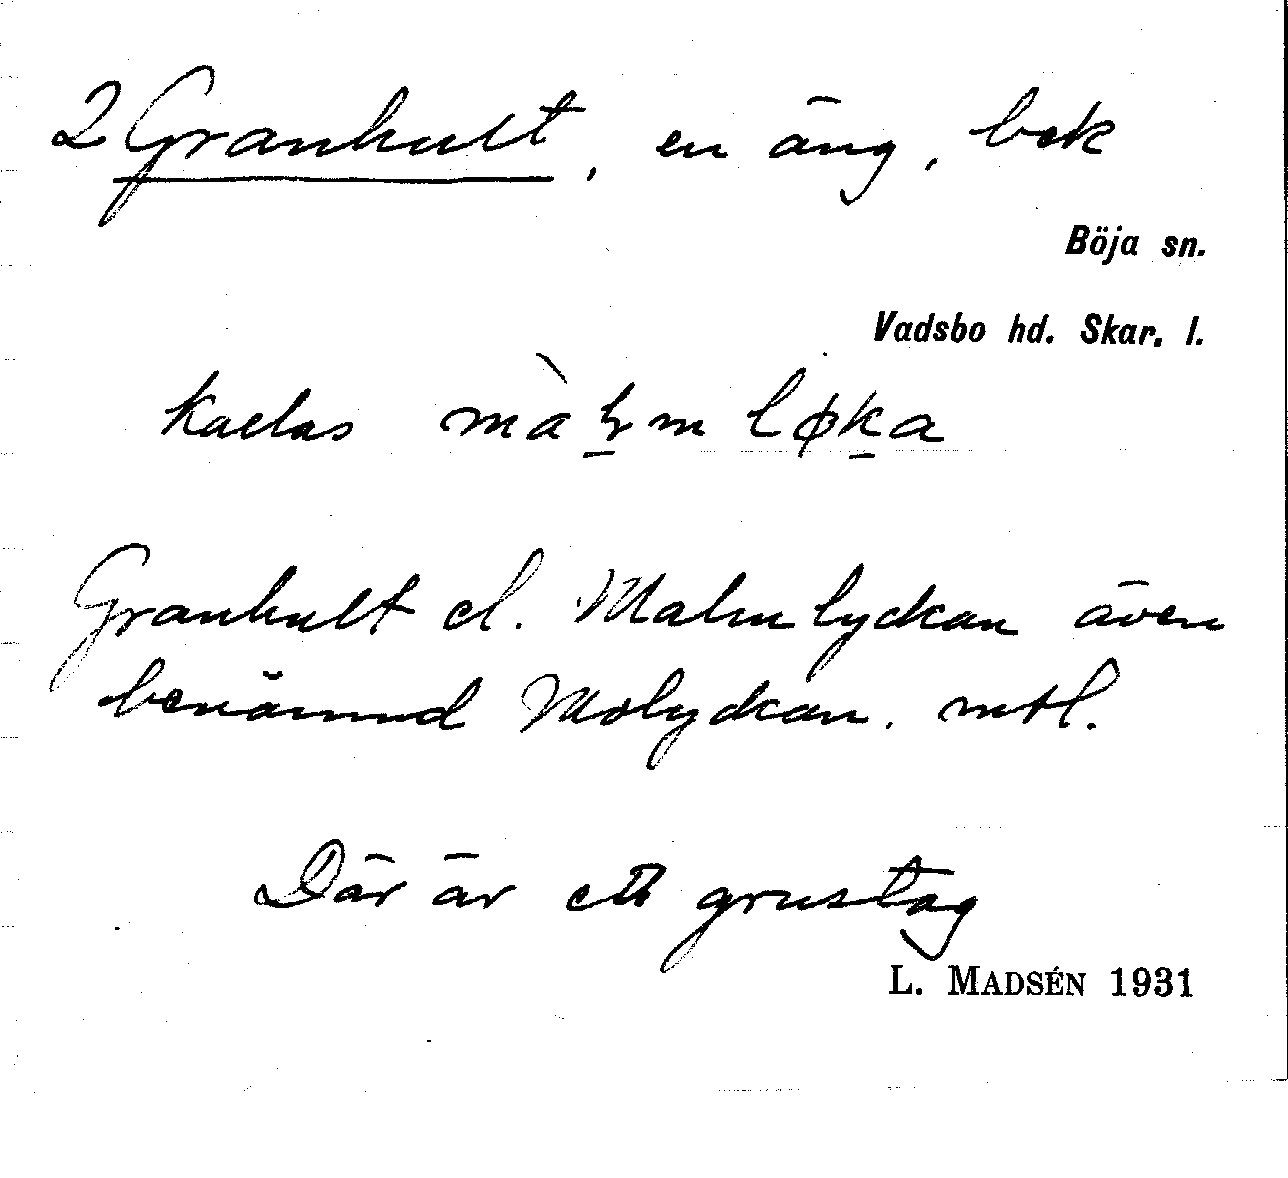 2 Granhult, en äng, bek
Böja sn.
Vadsbo hd. Skar. l.
kallas
Granhult el. Malmlyckan även
benämnd Molyckan. mtl.
Där är ett grustag
L. MADSÉN 1931